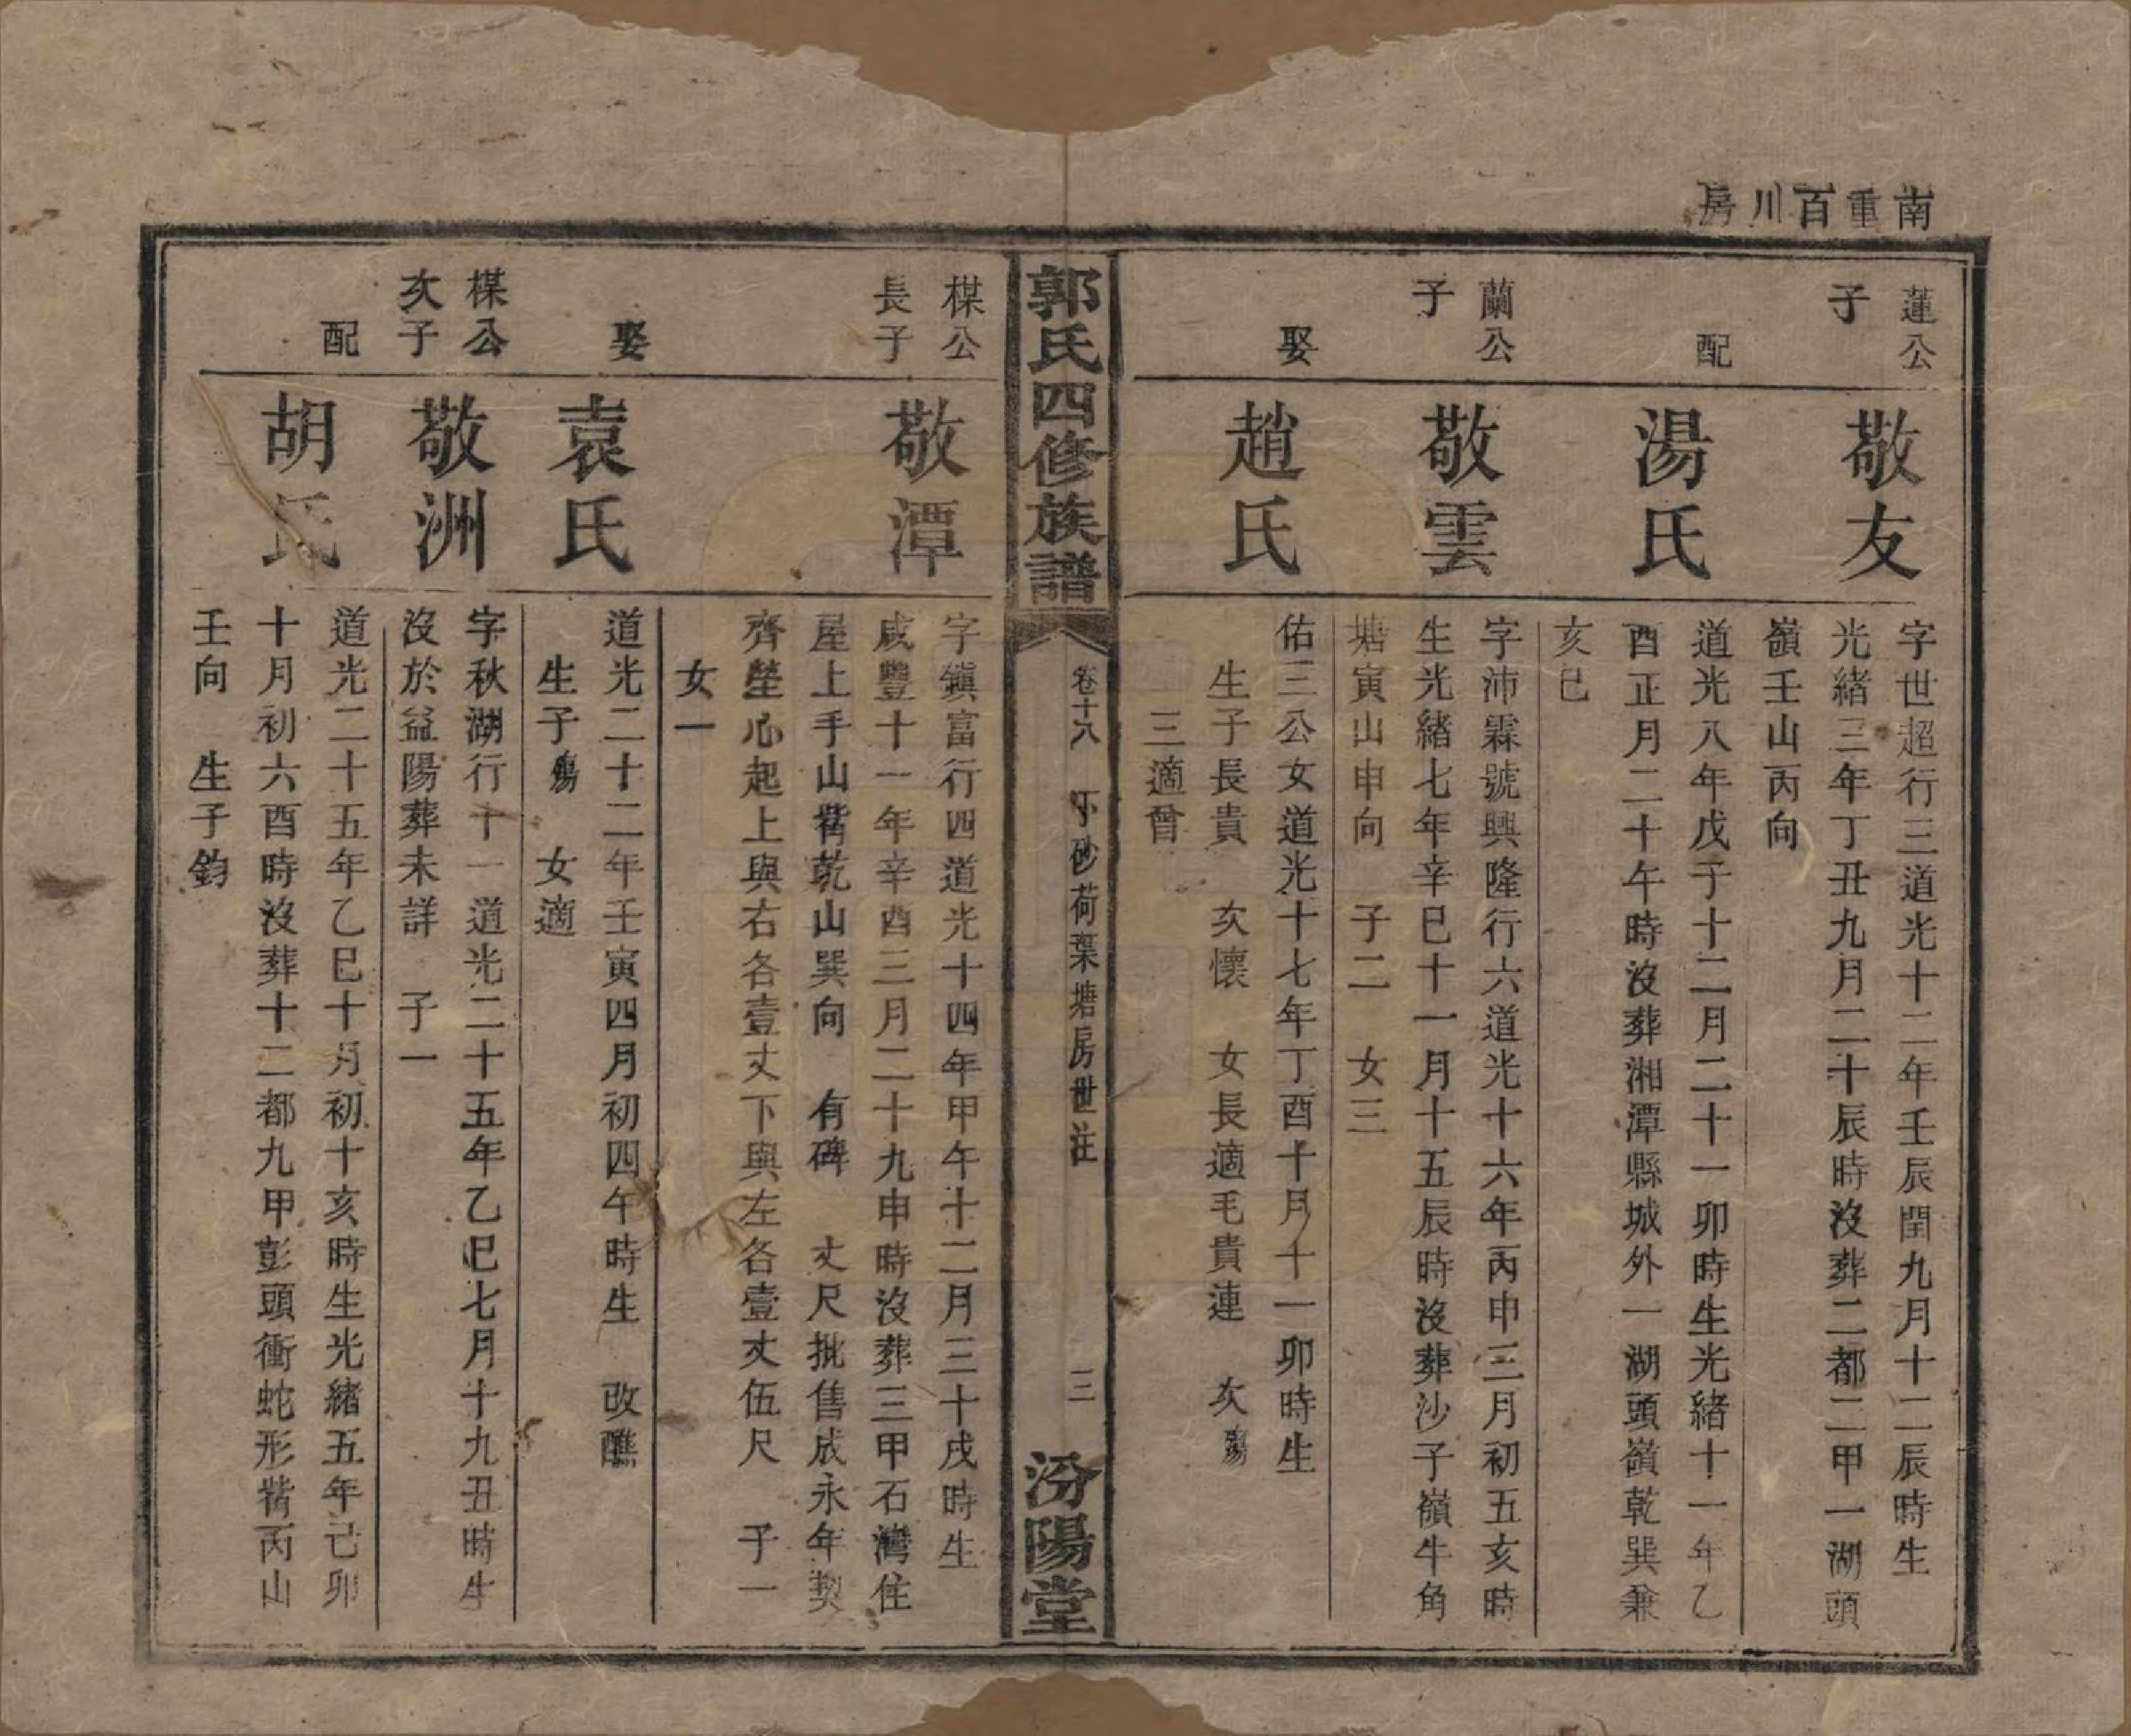 南重百川房
蓮公
子
敬友
字世超行三道光十二年壬辰閏九月十二辰時生
光緒三年丁丑九月二十辰時沒葬二都二甲一湖頭
嶺壬山丙向
配
湯氏
道光八年戊子十二月二十一卯時生光緒十一年乙
酉正月二十午時沒葬湘潭縣城外一湖頭嶺乾巽兼
亥巳
蘭公
子
敬雲
字沛霖號興隆行六道光十六年丙申三月初五亥時
生光緒七年辛巳十一月十五辰時沒葬沙子嶺牛角
塘寅山申向 子二 女三
娶
趙氏
佑三公女道光十七年丁酉十月十一卯時生
生子長貴 次懷 女長適毛貴連 次殤
三適曾
郭氏四修族譜
卷十八 下砂荷葉塘房世注 三
汾陽堂
楳公
長子
敬潭
字鎭富行四道光十四年甲午十二月三十戌時生
咸豐十一年辛酉三月二十九申時沒葬三甲石灣住
屋上手山觜乾山巽向 有碑 丈尺批售成永年契
齊塋心起上與右各壹丈下與左各壹丈伍尺 子一
女一
娶
袁氏
道光二十二年壬寅四月初四午時生 改醮
生子殤 女適
楳公
次子
敬洲
字秋湖行十一道光二十五年乙巳七月十九丑時生
沒於益陽葬未詳 子一
配
胡氏
道光二十五年乙巳十月初十亥時生光緒五年己卯
十月初六酉時沒葬十二都九甲彭頭衝蛇形觜丙山
壬向 生子鈞